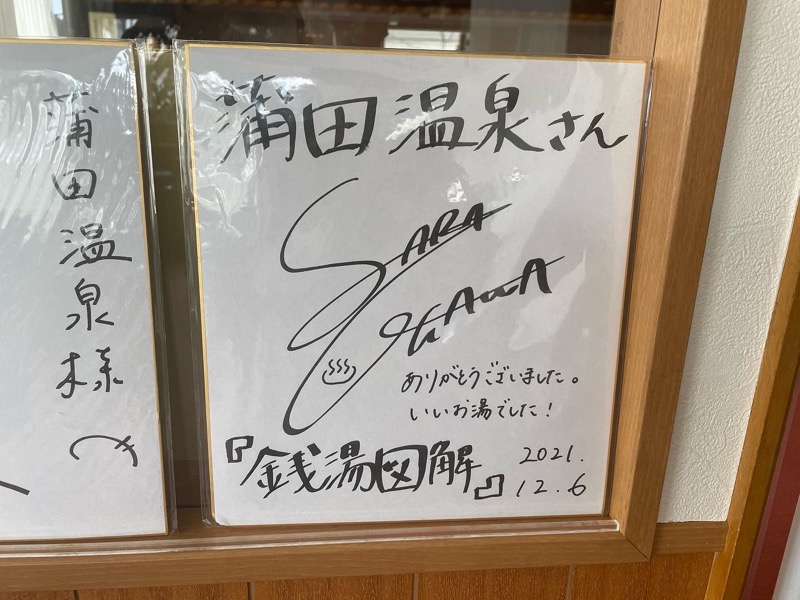 蒲田温泉様
蒲田温泉さん
SARA
OGAWA
ありがとうございました。
いいお湯でした！
『銭湯図解』
2021.
12.6